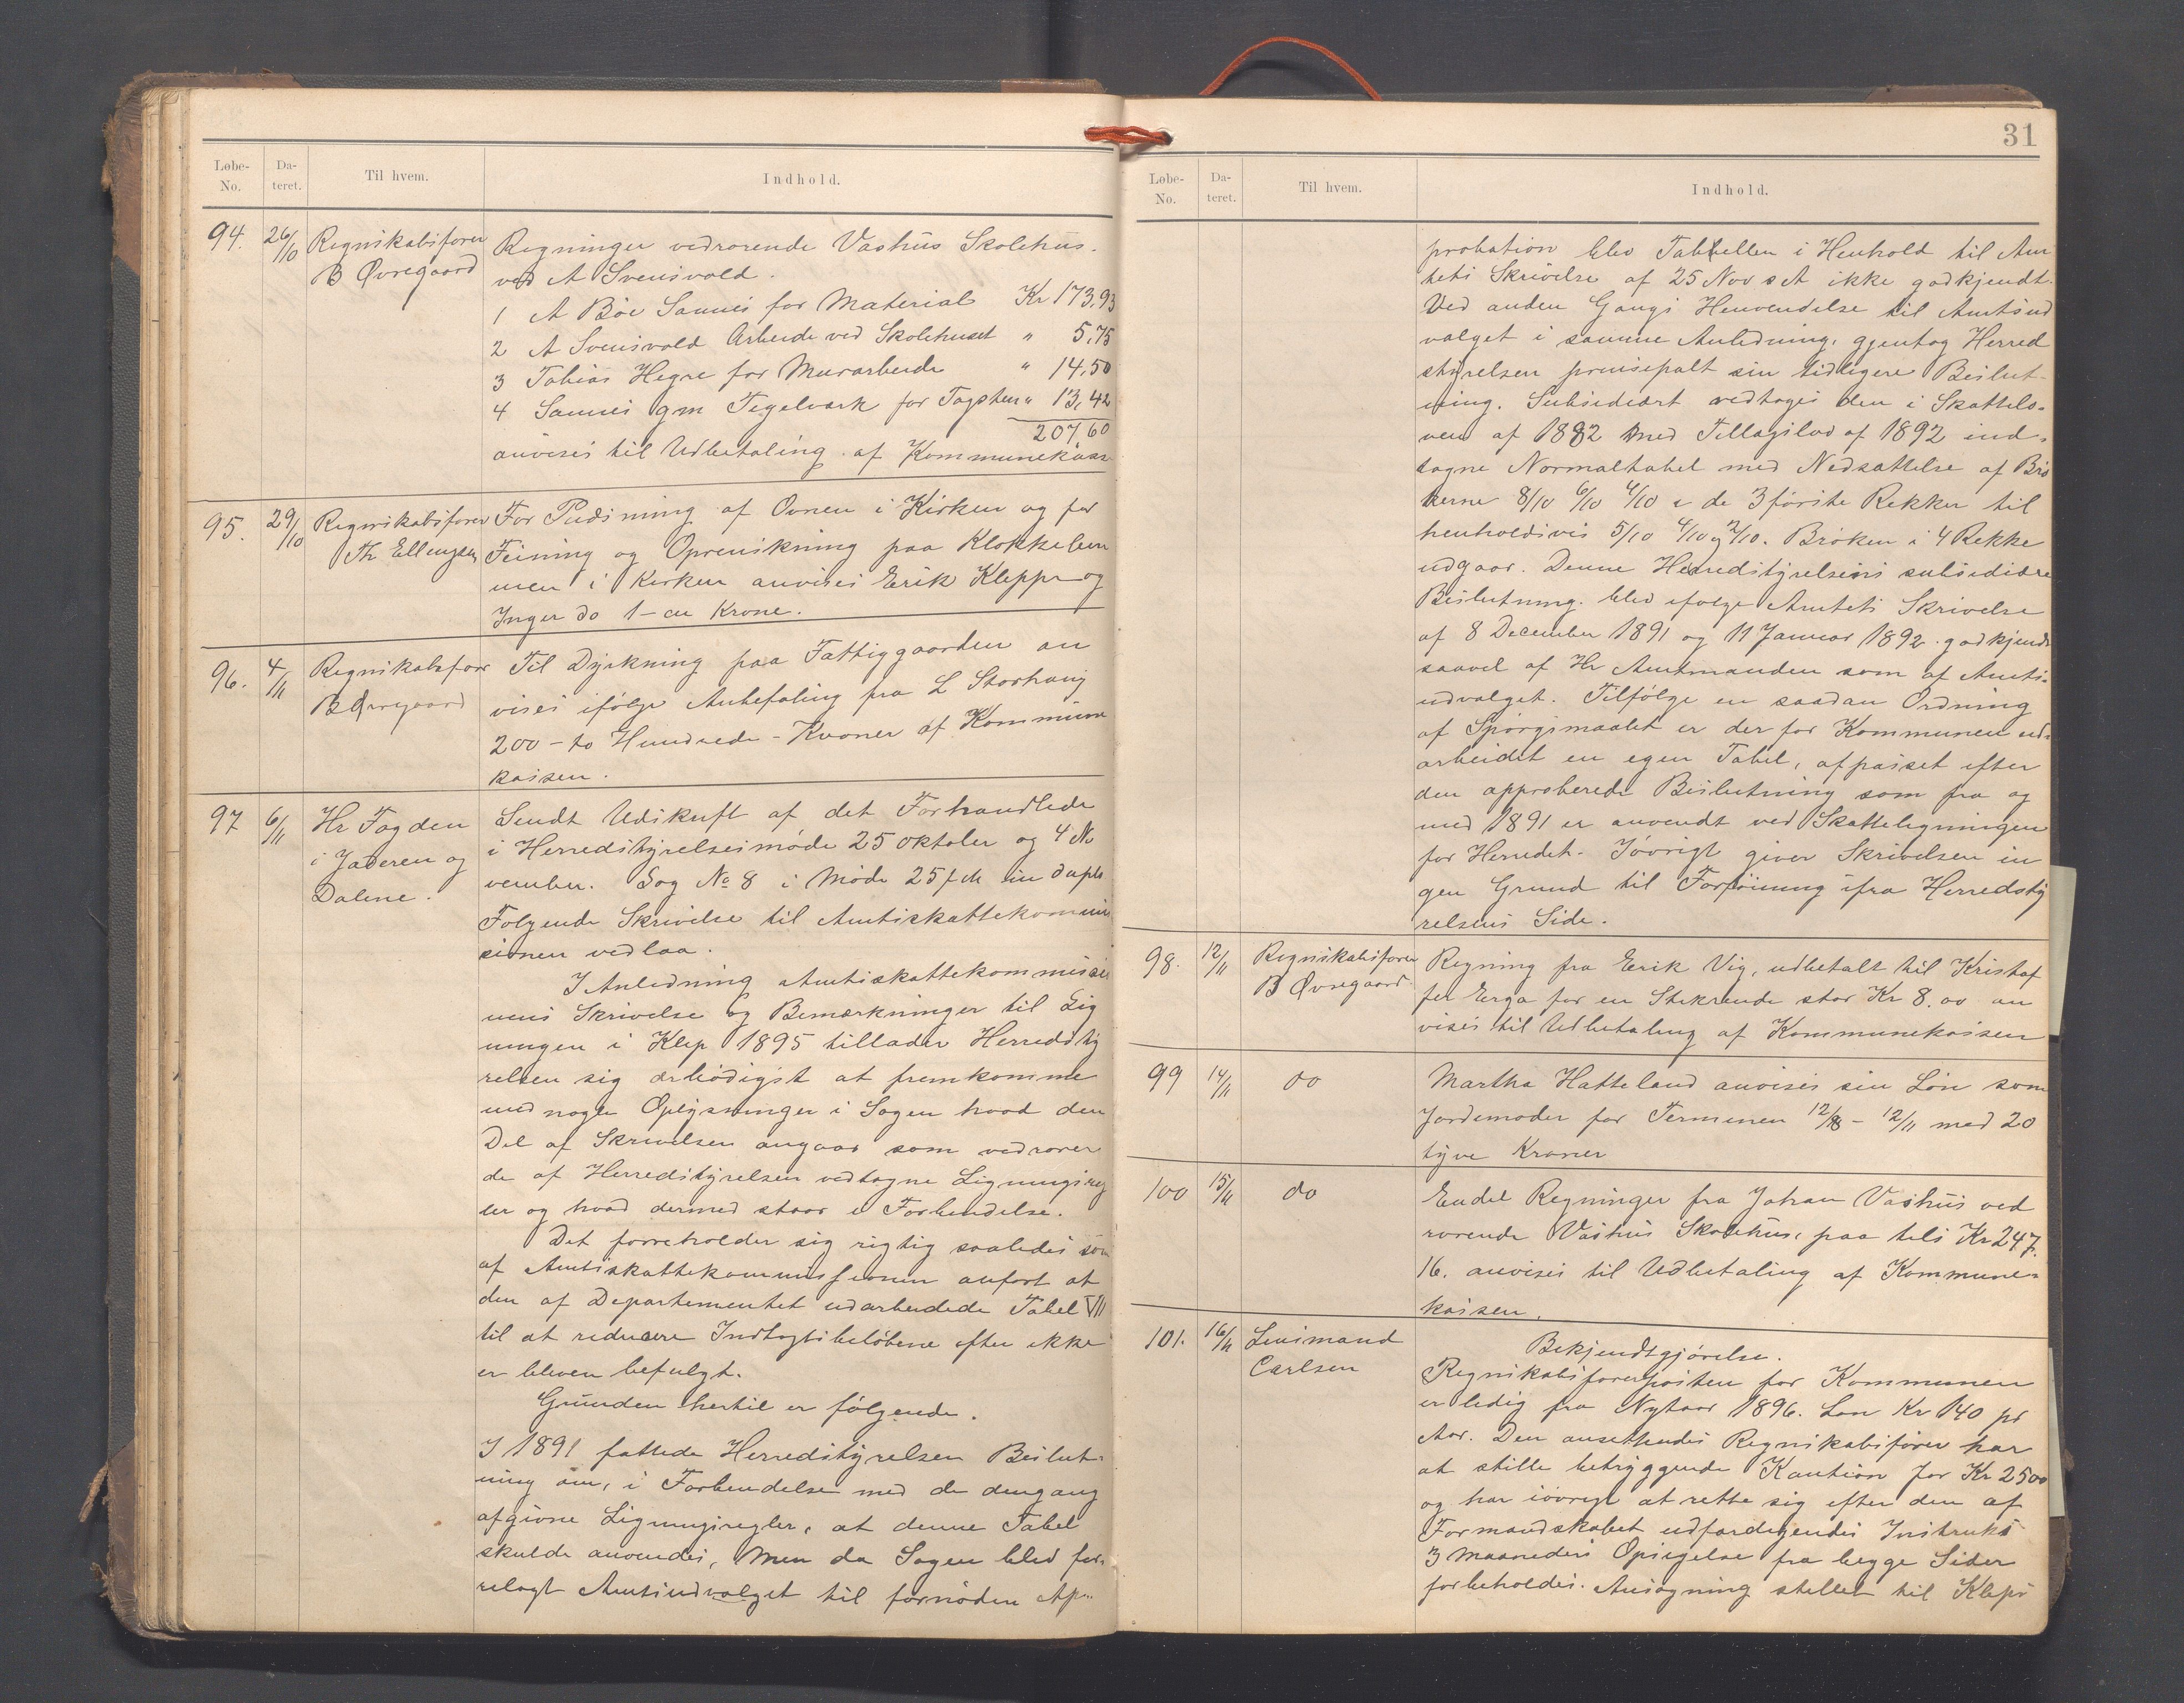 Løbe-No. Da-teret. Til hvem. Indhold.
94. 26/10 Regnskabsfører B Øvregaard
Regninger vedrørende Vashus Skolehus.
ved A Svensvold.
1 A Bøe Sannes for Material Kr 173,93
2 A Svensvold Arbeide ved Skolehuset " 5,75
3 Tobias Hegre for Murarbeide " 14,50
4 Sannes gm Tegelværk for Tagsten " 13,42
207,60
anvises til Udbetaling af Kommunekass
95. 29/10 Regnskabsfører Th Ellengsen
For Pudsning af Ovnen i Kirken og for
Feining og Oprenskning paa Klokkebun
nen i Kirken anvises Erik Kleppe og
Inger do 1 - en Krone.
96. 4/11 Regnskabsfører B Øvregaard
Til Dyrkning paa Fattiggaarden an
vises ifølge Anbefaling fra L Storhaug
200 - to Hundrede - Kroner af Kommune
kassen.
97 6/11 Hr Fogden i Jæderen og Dalene.
Sendt Udskrift af det Forhandlede
i Herredstyrelsesmøde 25 oktober og 4 No
vember. Sag No 8 i Møde 25 f.M. in duplo
Følgende Skrivelse til Amtsskattekommis
sionen vedlaa.
I Anledning Amtsskattekommissio
nens Skrivelse og Bemærkninger til Lig
ningen i Klep 1895 tillader Herredsty
relsen sig ærbødigst at fremkomme
med nogle Oplysninger i Sagen hvad den
Del af Skrivelsen angaar som vedrører
de af Herredstyrelsen vedtagne Ligningsreg
ler og hvad dermed staar i Forbindelse.
Det forreholder sig rigtig saaledes som
af Amtsskattekommissionen anført at
den af Departementet udarbeidede Tabel VII
til at reducere Indtægtsbeløbene efter ikke
er bleven befulgt.
Grunden hertil er følgende.
I 1891 fattede Herredstyrelsen Beslut-
ning om, i Forbindelse med de dengang
afgivne Ligningsregler, at denne Tabel
skulde anvendes, Men da Sagen blev fore-
relagt Amtsudvalget til fornøden Ap-
31
Løbe-No. Da-teret. Til hvem. Indhold.
probation blev Tabbellen i Henhold til Am
tets Skrivelse af 25 Nov s A ikke godkjendt.
Ved anden Gangs Henvendelse til Amtsud
valget i samme Anledning, gjentog Herred
styrelsen prinsipalt sin tidligere Beslut-
ning. Subsidiært vedtoges den i Skattelo-
ven af 1882 med Tillægslov af 1892 ind-
tagne Normaltabel med Nedsættelse af Brø
kerne 8/10 6/10 4/10 i de 3 første Rekker til
henholdsvis 5/10 4/10 og 2/10. Brøken i 4 Rekke
udgaar. Denne Herredstyrelsens subsidiære
Beslutning. blev ifølge Amtets Skrivelse
af 8 December 1891 og 11 Januar 1892 godkjendt
saavel af Hr Amtmanden som af Amts-
udvalget. Tilfølge en saadan Ordning
af Spørgsmaalet er der for Kommunen ud-
arbeidet en egen Tabel, afpasset efter
den approberede Beslutning som fra og
med 1891 er anvendt ved Skatteligningen
for Herredet. Iøvrigt giver Skrivelsen in
gen Grund til Forføining ifra Herredsty
relsens Side.
98. 12/11 Regnskabsfører B Øvregaard
Regning fra Erik Vig, udbetalt til Kristof
fer Erga for en Stikrende stor Kr 8.00 an
vises til Udbetaling af Kommunekassen
99 14/11 do
Martha Hatteland anvises sin Løn som
Jordemoder for Terminen 12/8 - 12/11 med 20
tyve Kroner
100 15/11 do
Endel Regninger fra Johan Vashus ved
rørende Vashus Skolehus, paa tils Kr 247.
16. anvises til Udbetaling af Kommune-
kassen.
101. 16/11 Lensmand Carlsen
Bekjendtgjørelse.
Regnskabsførerposten for Kommunen
er ledig fra Nytaar 1896. Løn Kr 140 pr
Aar. Den ansettendes Regnskabsfører har
at stille betryggende Kaution for Kr 2500
og har iøvrigt at rette sig efter den af
Formandskabet udfærdigendes Instruks
3 Maaneders Opsigelse fra begge Sider
forbeholdes. Ansøgning stillet til Kleps